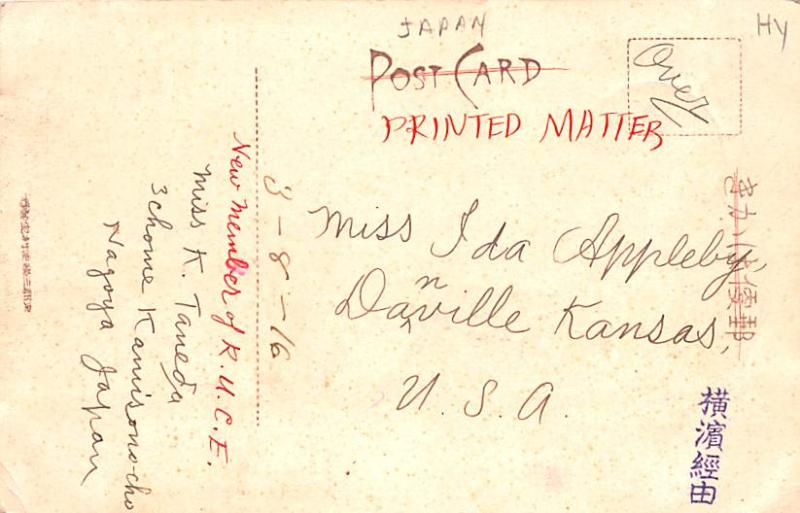 JAPAN
HY
POST CARD
PRINTED MATTER
Over
3-8-16
New Member of K.U.C.E.
Miss K. Taneda
3chome Kamisono-cho
Nagoya Japan
Miss Ida Appleby,
Danville Kansas,
U.S.A.
きかは便郵
横濱經由